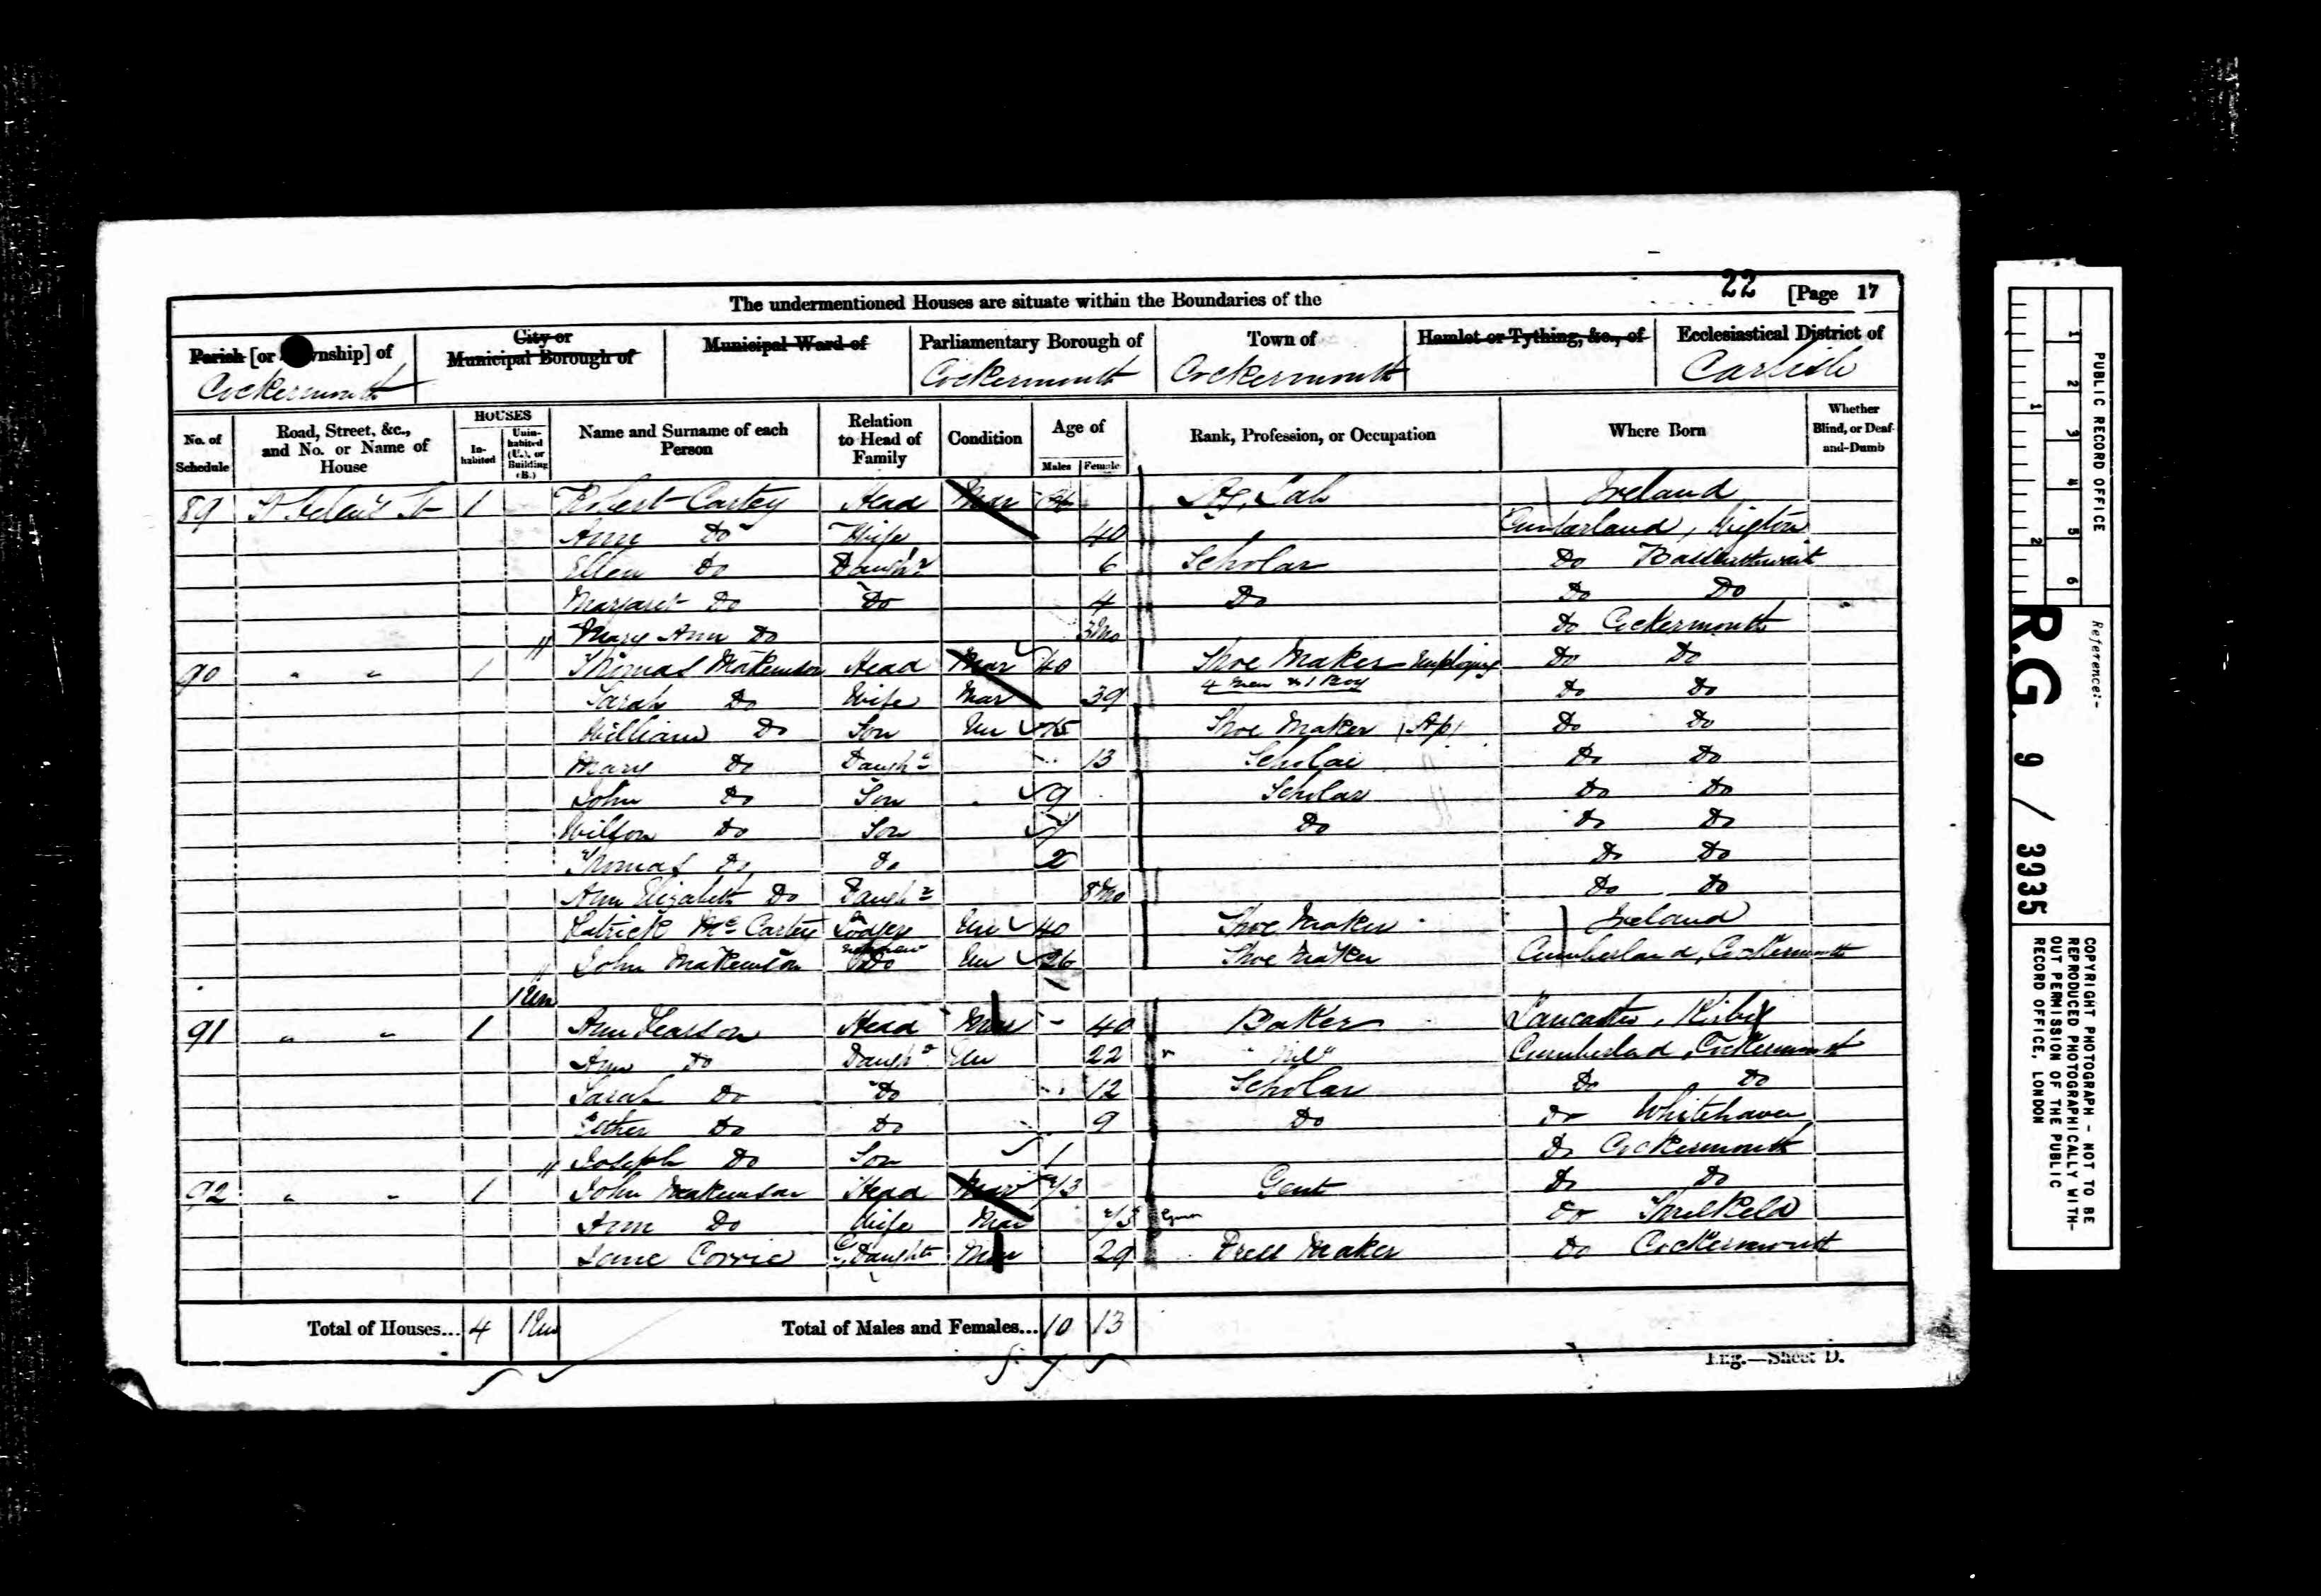 The undermentioned Houses are situate within the Boundaries of the
22 [Page 17
Parish [or wnship] of
Cockermouth
City or
Municipal Borough of
Municipal Ward of
Parliamentary Borough of
Cockermouth
Town of
Cockermouth
Hamlet or Tything, &c., of
Ecclesiastical District of
Carlisle
No. of Schedule
Road, Street, &c., and No. or Name of House
HOUSES
In-habited
Unin-habited (U.), or Building (B.)
Name and Surname of each Person
Relation to Head of Family
Condition
Age of
Males
Female
Rank, Profession, or Occupation
Where Born
Whether Blind, or Deaf-and-Dumb
89 St Helen's St 1 Robert Cartey Head Mar Ag. Lab Ireland
Ann Do Wife 40 Cumberland, Wigton
Ellen Do Daughr 6 Scholar Do Bassenthwait
Margaret Do Do 4 Do Do Do
Mary Ann Do 3Mo Do Cockermouth
90 " " 1 Thomas Makinson Head Mar 40 Shoe Maker Employing Do Do
4 Men & 1 Boy
Sarah Do Wife Mar 39 Do Do
William Do Son Un 15 Shoe Maker (Ap) Do Do
Mary Do Daughr 13 Scholar Do Do
John Do Son 9 Scholar Do Do
Wilson Do Son 7 Do Do Do
Thomas Do Do 2 Do Do
Ann Elizabeth Do Daughr 8Mo Do Do
Patrick Mc Cartey Lodger Un 40 Shoe Maker Ireland
John Makinson nephew Do Un 26 Shoe Maker Cumberland, Cockermouth
1 Un
91 " " 1 Ann Pearson Head Mar 40 Baker Lancaster, Kirby
Ann Do Daughr Un 22 Cumberland, Cockermouth
Sarah Do Do 12 Scholar Do Do
Esther Do Do 9 Do Do Whitehaven
Joseph Do Son 1 Do Cockermouth
92 " " 1 John Makinson Head Mar 73 Gent Do Do
Ann Do Wife Mar Do Threlkeld
Jane Corrie G. Daughtr Mar 29 Dress Maker Do Cockermouth
Total of Houses... 4 1 Un
Total of Males and Females... 10 13
Eng.—Sheet D.
PUBLIC RECORD OFFICE
1 2 3 4 5 6
1 2
Reference:-
R.G. 9 / 3935
COPYRIGHT PHOTOGRAPH - NOT TO BE
REPRODUCED PHOTOGRAPHICALLY WITH-
OUT PERMISSION OF THE PUBLIC
RECORD OFFICE, LONDON